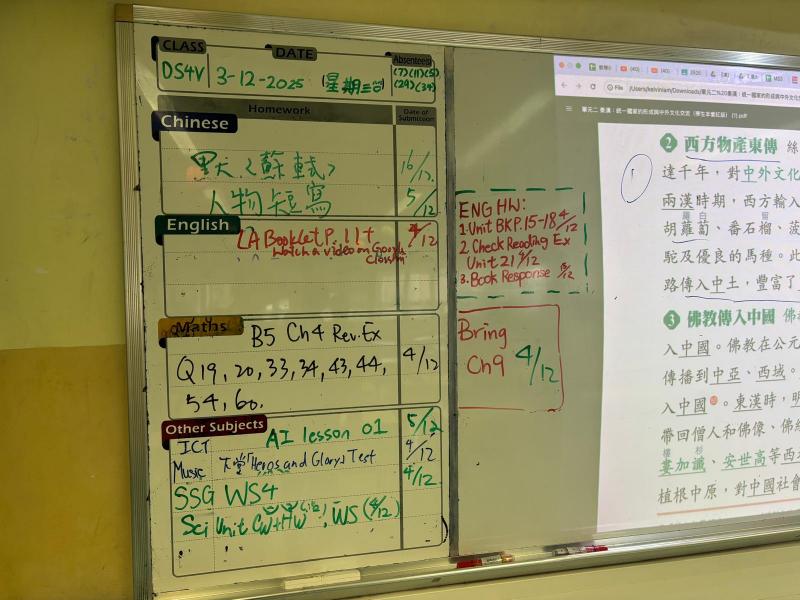 CLASS
DATE
Absentee(s)
DS4V
3-12-2025
星期三
(7)(11)(5)
(29)(34)
Homework
Date of Submission
Chinese
默《蘇軾》 16/12
人物短寫 5/12
English
LA Booklet P. 11+ 4/12
Watch a video on Google
Maths
B5 Ch4 Rev.Ex
Q19, 20, 33, 34, 43, 44, 4/12
54, 60.
Other Subjects
ICT AI lesson 01 5/12
Music 天堂「Heros and Glory」Test 4/12
SSG WS4 4/12
Sci Unit CW+HW, WS (4/12)
ENG HW:
1. Unit BKP. 15-18 4/12
2. Check Reading Ex
Unit 21 4/12
3. Book Response
Bring
Ch9 4/12
File /Users/kelvinlam/Downloads/單元二%20秦漢：統一國家的形成與中外文化交流（學生本書紅版） (1).pdf
單元二 秦漢：統一國家的形成與中外文化交流（學生本書紅版） (1).pdf
2 西方物產東傳 絲
達千年，對中外文化
兩漢時期，西方輸入
胡蘿蔔、番石榴、菠
駝及優良的馬種。此
路傳入中土，豐富了
3 佛教傳入中國 佛
入中國。佛教在公元
傳播到中亞、西域。
入中國。東漢時，明
帶回僧人和佛像、佛
婁加讖、安世高等西
植根中原，對中國社會